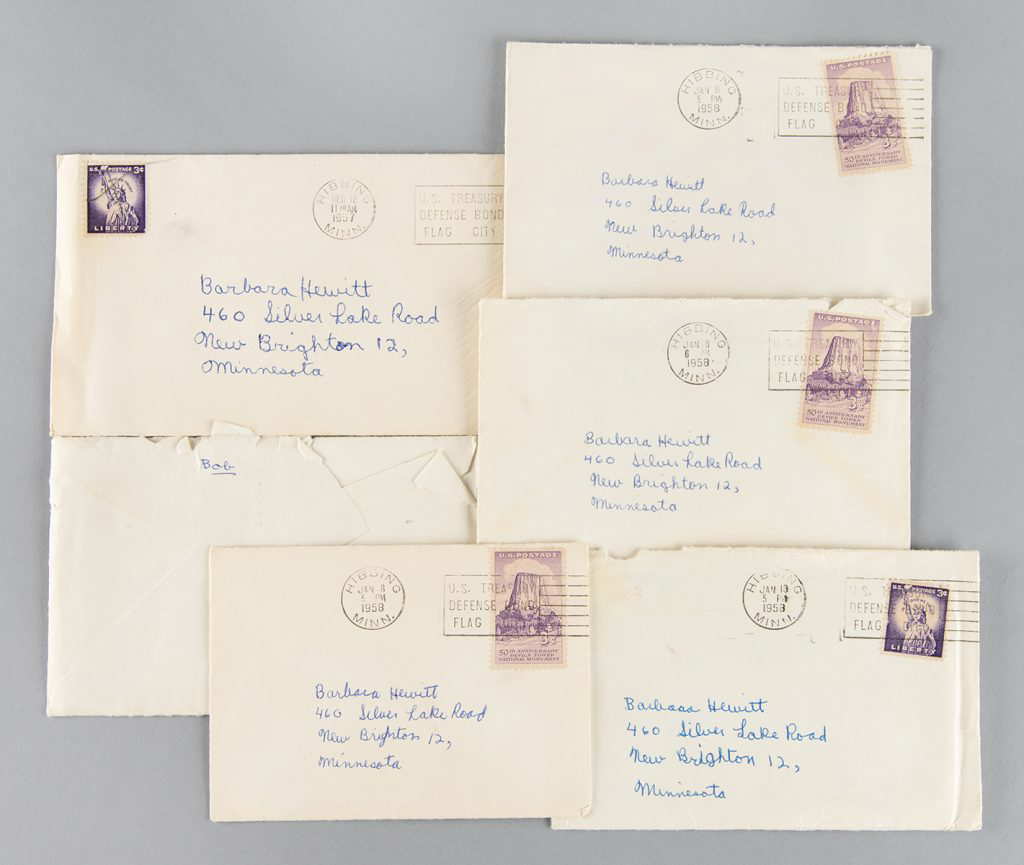 U.S. POSTAGE 3¢
LIBERTY
HIBBING
11 AM
1957
MINN.
U.S. TREASURY
DEFENSE BOND
FLAG CITY
Barbara Hewitt
460 Silver Lake Road
New Brighton 12,
Minnesota
Bob
HIBBING
JAN 8
5 PM
1958
MINN.
U.S. TREASURY
DEFENSE BOND
FLAG
U.S. POSTAGE
50TH ANNIVERSARY
DEVILS TOWER
NATIONAL MONUMENT
3¢
Barbara Hewitt
460 Silver Lake Road
New Brighton 12,
Minnesota
HIBBING
JAN
6 PM
1958
MINN.
U.S. TREASURY
DEFENSE BOND
FLAG
U.S. POSTAGE
3¢
50TH ANNIVERSARY
DEVILS TOWER
NATIONAL MONUMENT
Barbara Hewitt
460 Silver Lake Road
New Brighton 12,
Minnesota
HIBBING
JAN 8
5 PM
1958
MINN.
U.S. TREASURY
DEFENSE BOND
FLAG
U.S. POSTAGE
3¢
50TH ANNIVERSARY
DEVILS TOWER
NATIONAL MONUMENT
Barbara Hewitt
460 Silver Lake Road
New Brighton 12,
Minnesota
HIBBING
JAN 13
5 PM
1958
MINN.
U.S.
DEFENSE
FLAG
U.S. POSTAGE 3¢
LIBERTY
Barbara Hewitt
460 Silver Lake Road
New Brighton 12,
Minnesota